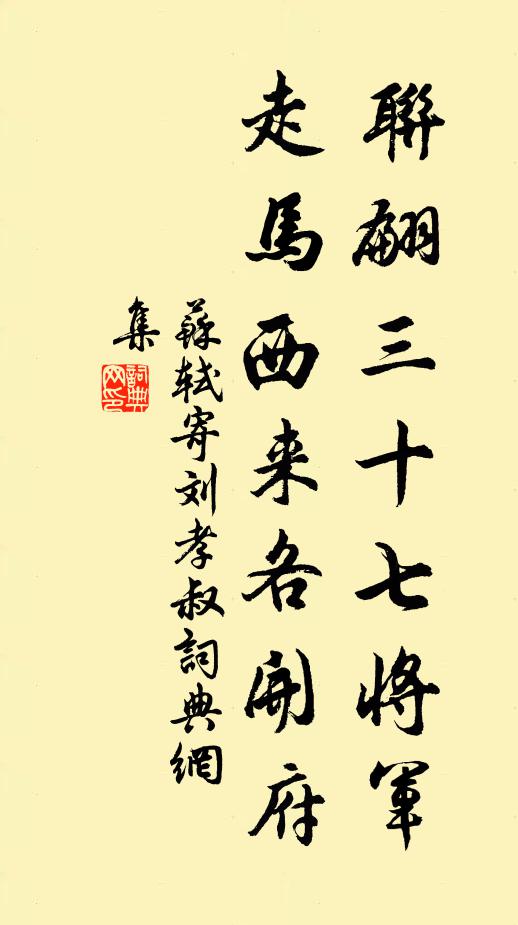 聯翩三十七將軍
走馬西来各開府
蘇軾寄刘孝叔詞典網
集
詞典
网印